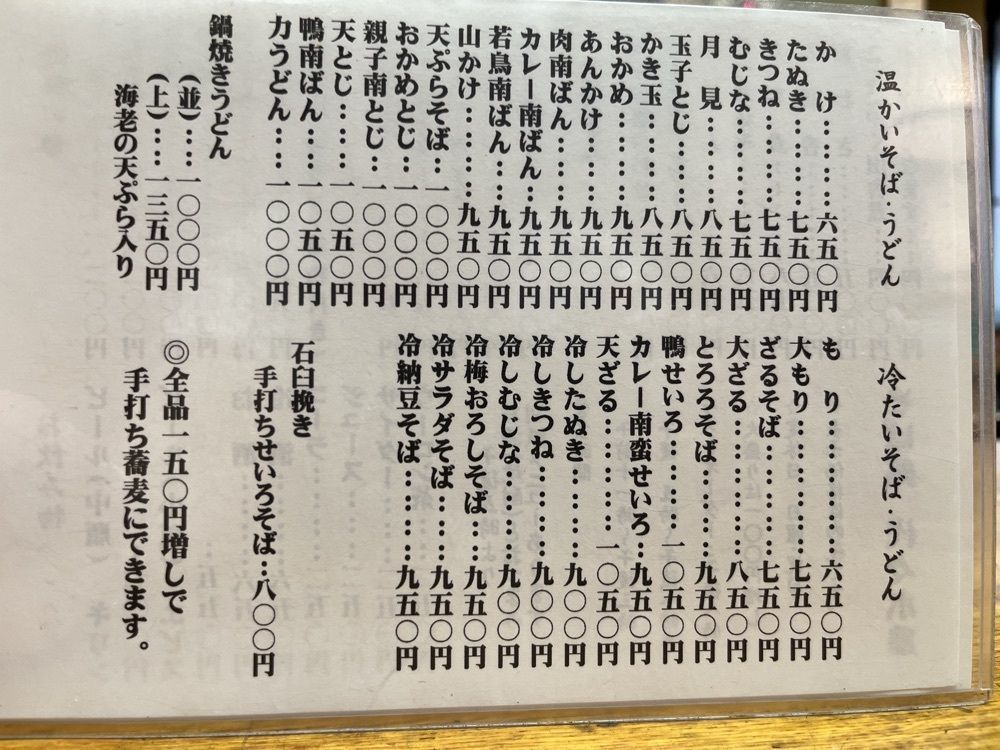 温かいそば・うどん
かけ………六五〇円
たぬき………七五〇円
きつね………七五〇円
むじな………七五〇円
月見………八五〇円
玉子とじ………八五〇円
かき玉………八五〇円
おかめ………九五〇円
あんかけ………九五〇円
肉南ばん………九五〇円
カレー南ばん…九五〇円
若鳥南ばん…九五〇円
山かけ………九五〇円
天ぷらそば…一〇〇〇円
おかめとじ…一〇〇〇円
親子南とじ…一〇〇〇円
天とじ……一〇五〇円
鴨南ばん…一〇五〇円
力うどん…一〇〇〇円
鍋焼きうどん
(並)……一〇〇〇円
(上)……一三五〇円
海老の天ぷら入り
冷たいそば・うどん
もり………六五〇円
大もり………七五〇円
ざるそば………七五〇円
大ざる………八五〇円
とろろそば………九五〇円
鴨せいろ………一〇五〇円
カレー南蛮せいろ…九五〇円
天ざる………一〇五〇円
冷したぬき………九〇〇円
冷しきつね………九〇〇円
冷しむじな………九〇〇円
冷梅おろしそば…九五〇円
冷サラダそば………九五〇円
冷納豆そば………九五〇円
石臼挽き
手打ちせいろそば…八〇〇円
◎全品一五〇円増しで
手打ち蕎麦にできます。